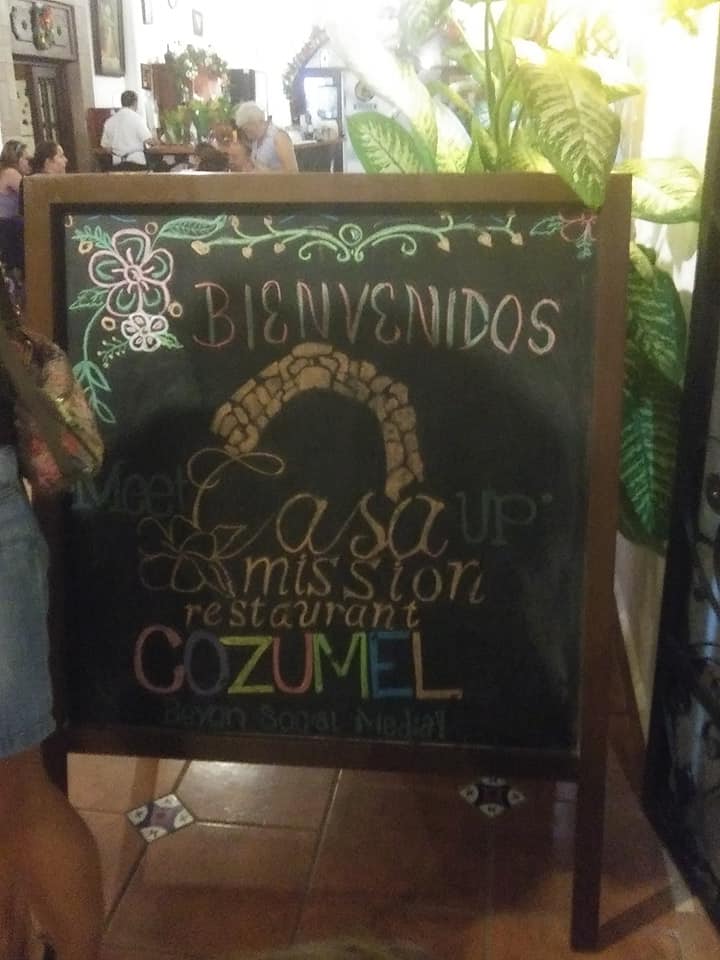 BIENVENIDOS
Meet Casa UP
mission
restaurant
COZUMEL
Beyon Social Media